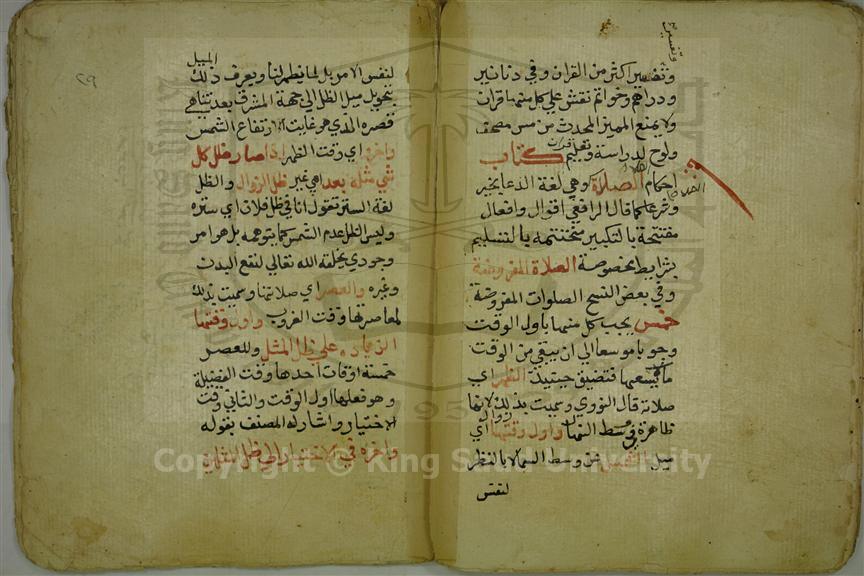 وتفسير
وتفسير اكثر من القران وفي دنانير
ودراهم وخواتم نقش علي كل منهما قران
ولا يمنع المميز المحدث من مس مصحف
ولوح لدراسة وتعليم قران كتاب
احكام الصلاة وهي لغة الدعا بخير
وشرعا كما قال الرافعي اقوال وافعال
مفتتحة بالتكبير مختتمة بالتسليم
بشرايط مخصوصة الصلاة المفروضة
وفي بعض النسخ الصلوات المفروضة
خمس يجب كل منهما باول الوقت
وجوبا موسعا الي ان يبقي من الوقت
ما يسعها فتضيق حينيذ الظهر اي
صلاته قال النووي وسميت بذلك لانها
ظاهرة في وسط النهار واول وقتها زوال اي
ميل الشمس عن وسط السما لا بالنظر
لنفس
٢٩
لنفس الامر بل لما يظهر لنا ويعرف ذلك الميل
بتحويل ميل الظل الي جهة المشرق بعد تناهي
قصره الذي هو غاية ارتفاع الشمس
واخره اي وقت الظهر اذا صار ظل كل
شي مثله بعد اي غير ظل الزوال والظل
لغة الستر تقول انا في ظل فلان اي ستره
وليس الظل عدم الشمس كما يتوهمه بل هو امر
وجودي يخلقه الله تعالي لنفع البدن
وغيره والعصر اي صلاتها وسميت بذلك
لمعاصرتها وقت الغروب واول وقتها
الزيادة علي ظل المثل وللعصر
خمسة اوقات احدها وقت الفضيلة
وهو فعلها اول الوقت والثاني وقت
الاختيار واشار له المصنف بقوله
واخره في الاختيار الي ظل المثلين
Copyright © King Saud University
1957